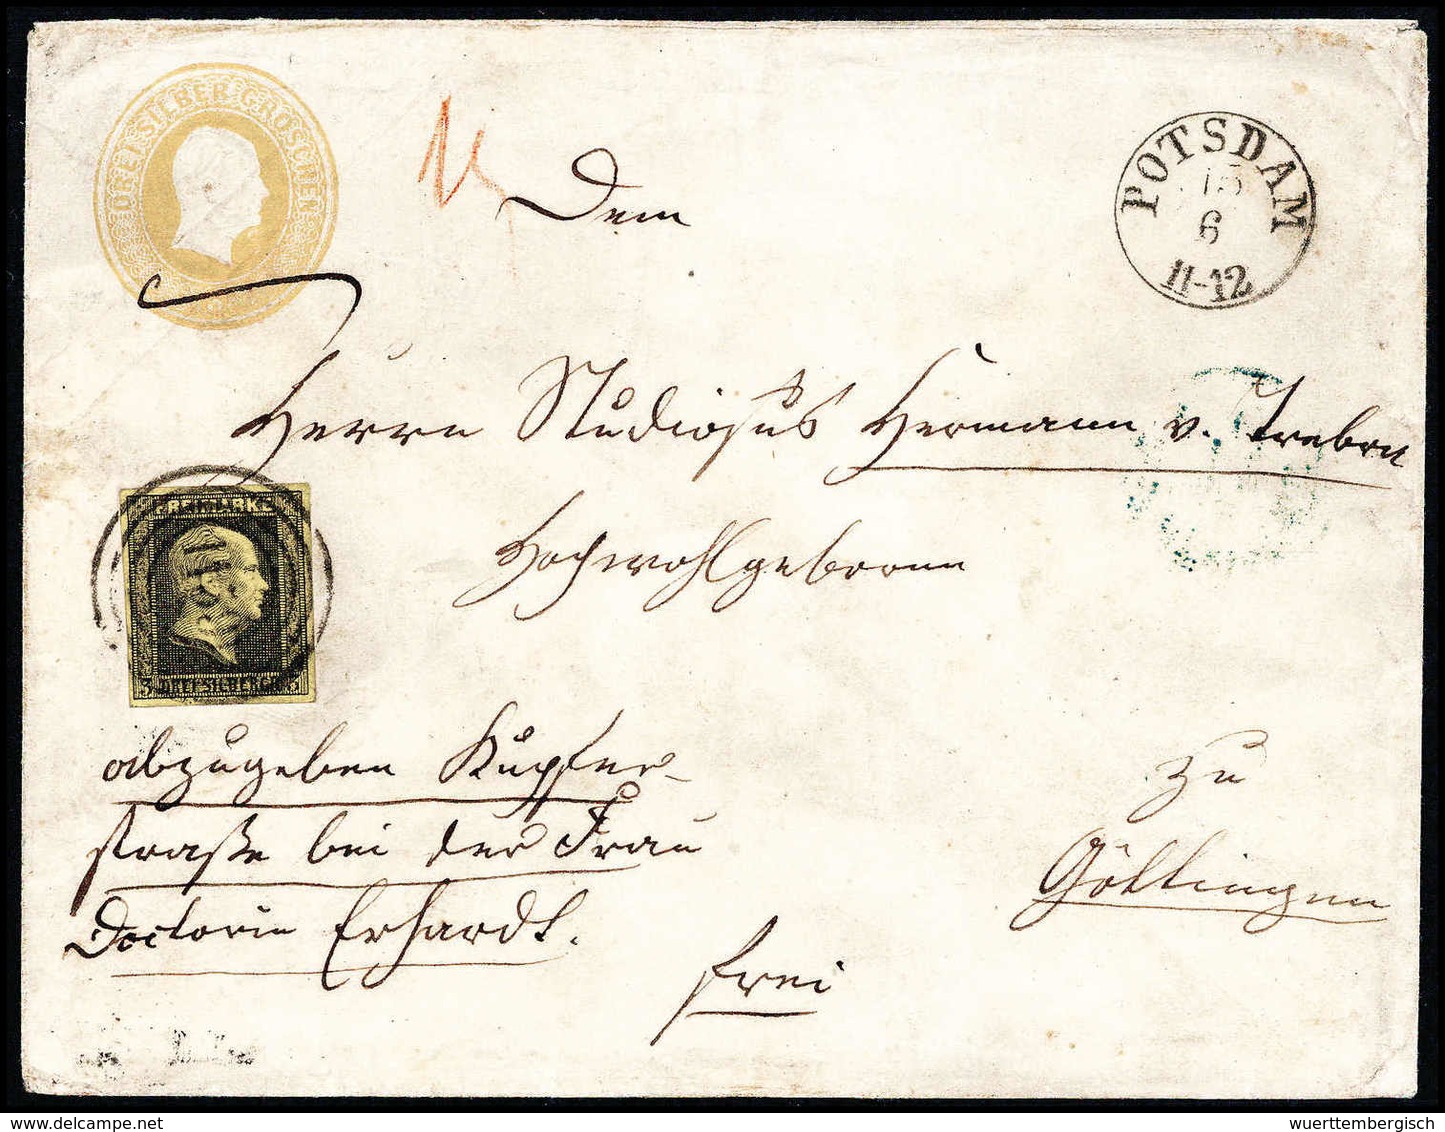 DREI SILBER GROSCHEN
Dem
POTSDAM
15
6
11-12
Herrn Studiosus Hermann v. Trebra
Hochwohlgeboren
FREIMARKE
3 DREI SILBERGR. 3
zu
Göttingen
abzugeben Kupfer-
straße bei der Frau
Doctorin Erhardt.
frei
wuerttembergisch